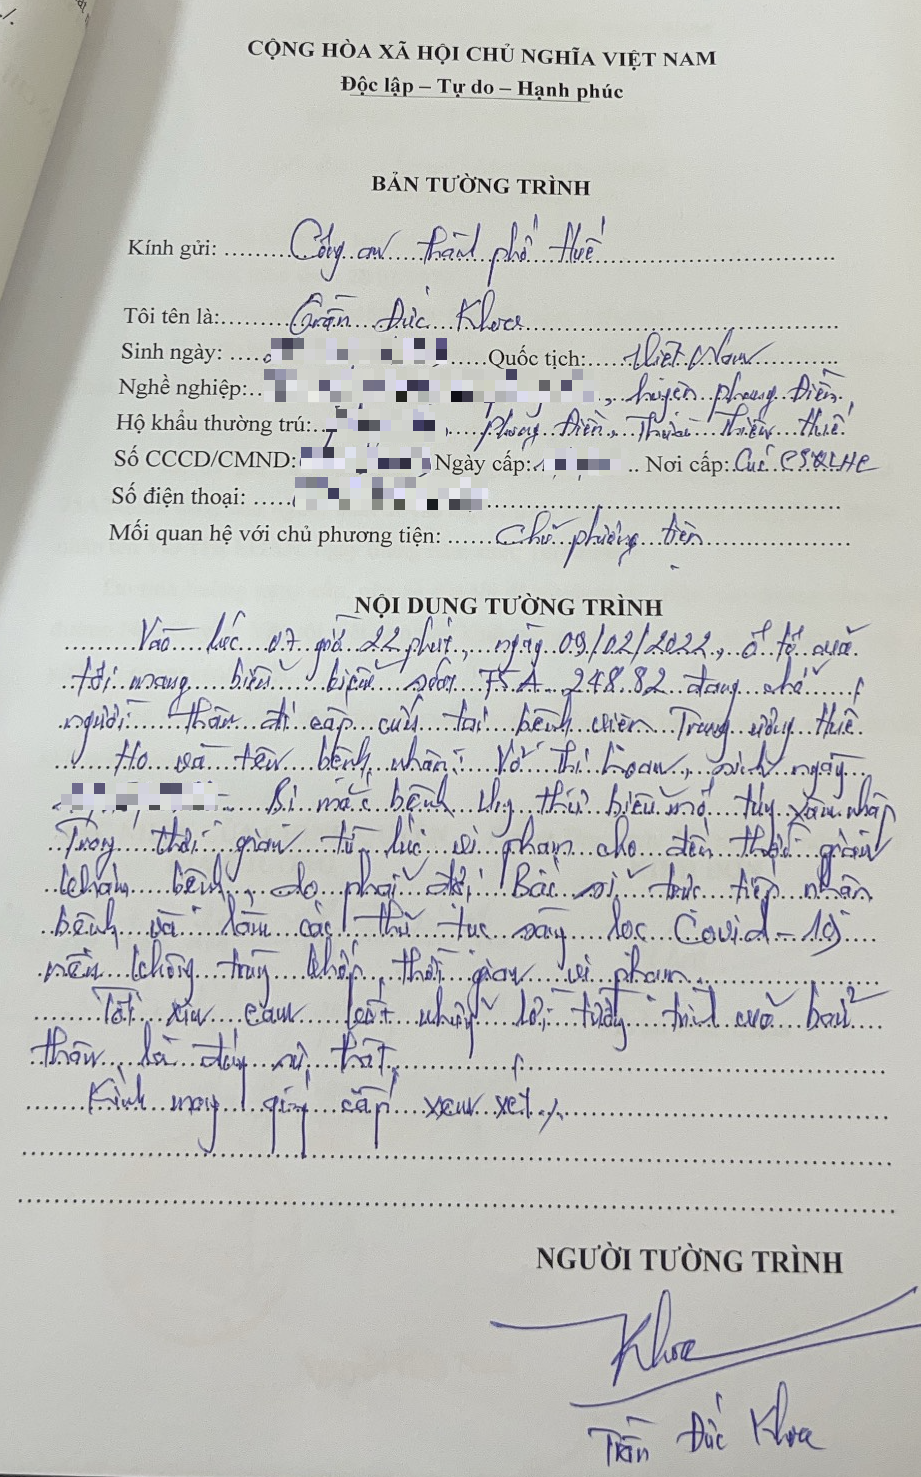 CỘNG HÒA XÃ HỘI CHỦ NGHĨA VIỆT NAM
Độc lập – Tự do – Hạnh phúc
BẢN TƯỜNG TRÌNH
Kính gửi: Công an thành phố Huế
Tôi tên là: Trần Đức Khoa
Sinh ngày: Quốc tịch: Việt Nam
Nghề nghiệp: , huyện Phong Điền
Hộ khẩu thường trú: , Phong Điền, Thừa Thiên Huế
Số CCCD/CMND: Ngày cấp: Nơi cấp: Cục CSQLHC
Số điện thoại:
Mối quan hệ với chủ phương tiện: Chủ phương tiện
NỘI DUNG TƯỜNG TRÌNH
Vào lúc 07 giờ 22 phút, ngày 09/02/2022, ô tô của
tôi mang biển kiểm soát 75A 248.82 đang chở
người thân đi cấp cứu tại bệnh viện Trung ương Huế
Họ và tên bệnh nhân: Võ Thị Hoan, sinh ngày
Bị mắc bệnh Ung thư biểu mô túy xâm nhập
Trong thời gian từ lúc vi phạm cho đến thời gian
khám bệnh, do phải đợi Bác sĩ trực tiếp nhận
bệnh và làm các thủ tục sàng lọc Covid-19
nên không trùng khớp thời gian vi phạm.
Tôi xin cam kết những lời tường trình của bản
thân là đúng sự thật.
Kính mong quý cấp xem xét./.
NGƯỜI TƯỜNG TRÌNH
Khoa
Trần Đức Khoa